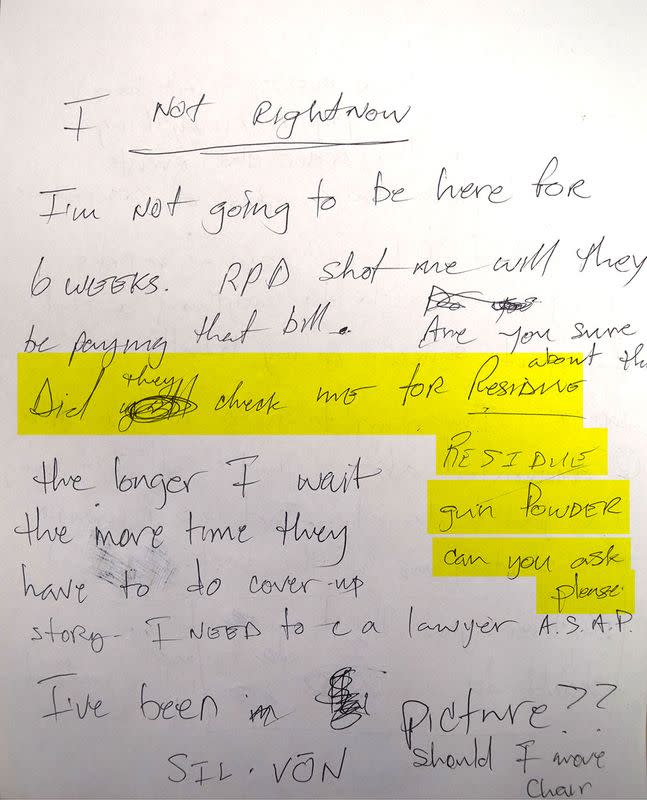 I Not Rightnow
I'm Not going to be here for
6 WEEKS. RPD shot me will they
be paying that bill. Are you sure
about th
Did they check me for Residue
RESIDUE
gun POWDER
can you ask
please.
the longer I wait
the more time they
have to do cover-up
story- I NEED to c a lawyer A.S.A.P.
I've been in picture??
SIL·VŌN should I move
Chair